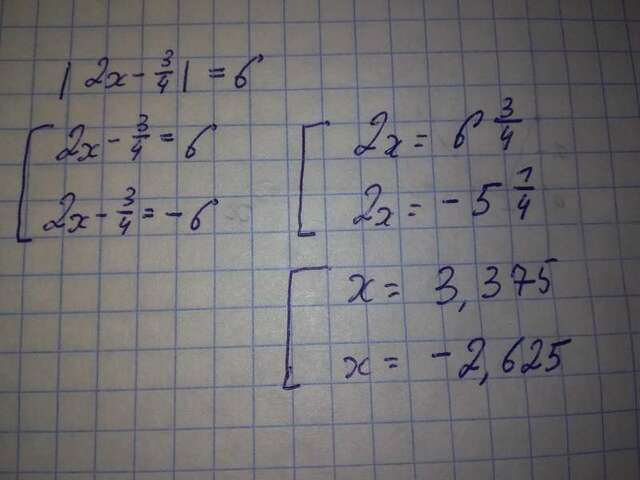 | 2x - 3/4 | = 6
2x - 3/4 = 6
2x - 3/4 = -6
2x = 6 3/4
2x = -5 1/4
x = 3,375
x = -2,625